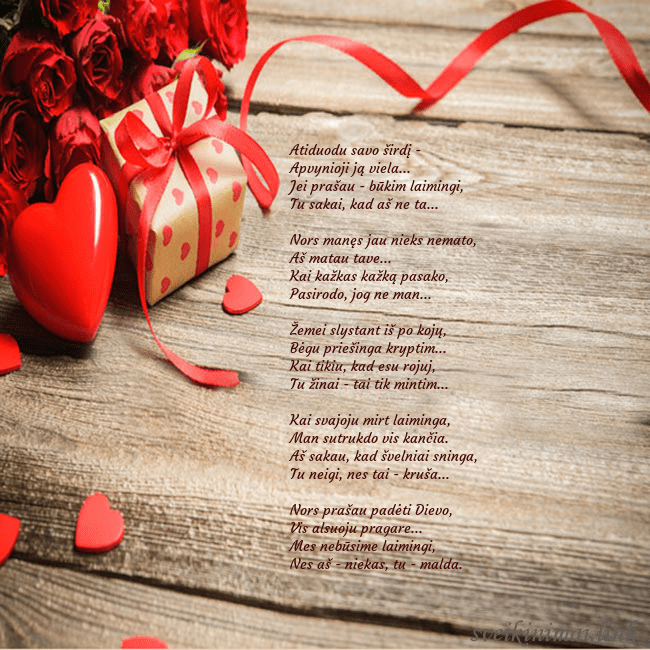 Atiduodu savo širdį -
Apvynioji ją viela...
Jei prašau - būkim laimingi,
Tu sakai, kad aš ne ta...

Nors manęs jau nieks nemato,
Aš matau tave...
Kai kažkas kažką pasako,
Pasirodo, jog ne man...

Žemei slystant iš po kojų,
Bėgu priešinga kryptim...
Kai tikiu, kad esu rojuj,
Tu žinai - tai tik mintim...

Kai svajoju mirt laiminga,
Man sutrukdo vis kančia.
Aš sakau, kad švelniai sninga,
Tu neigi, nes tai - kruša...

Nors prašau padėti Dievo,
Vis alsuoju pragare...
Mes nebūsime laimingi,
Nes aš - niekas, tu - malda.